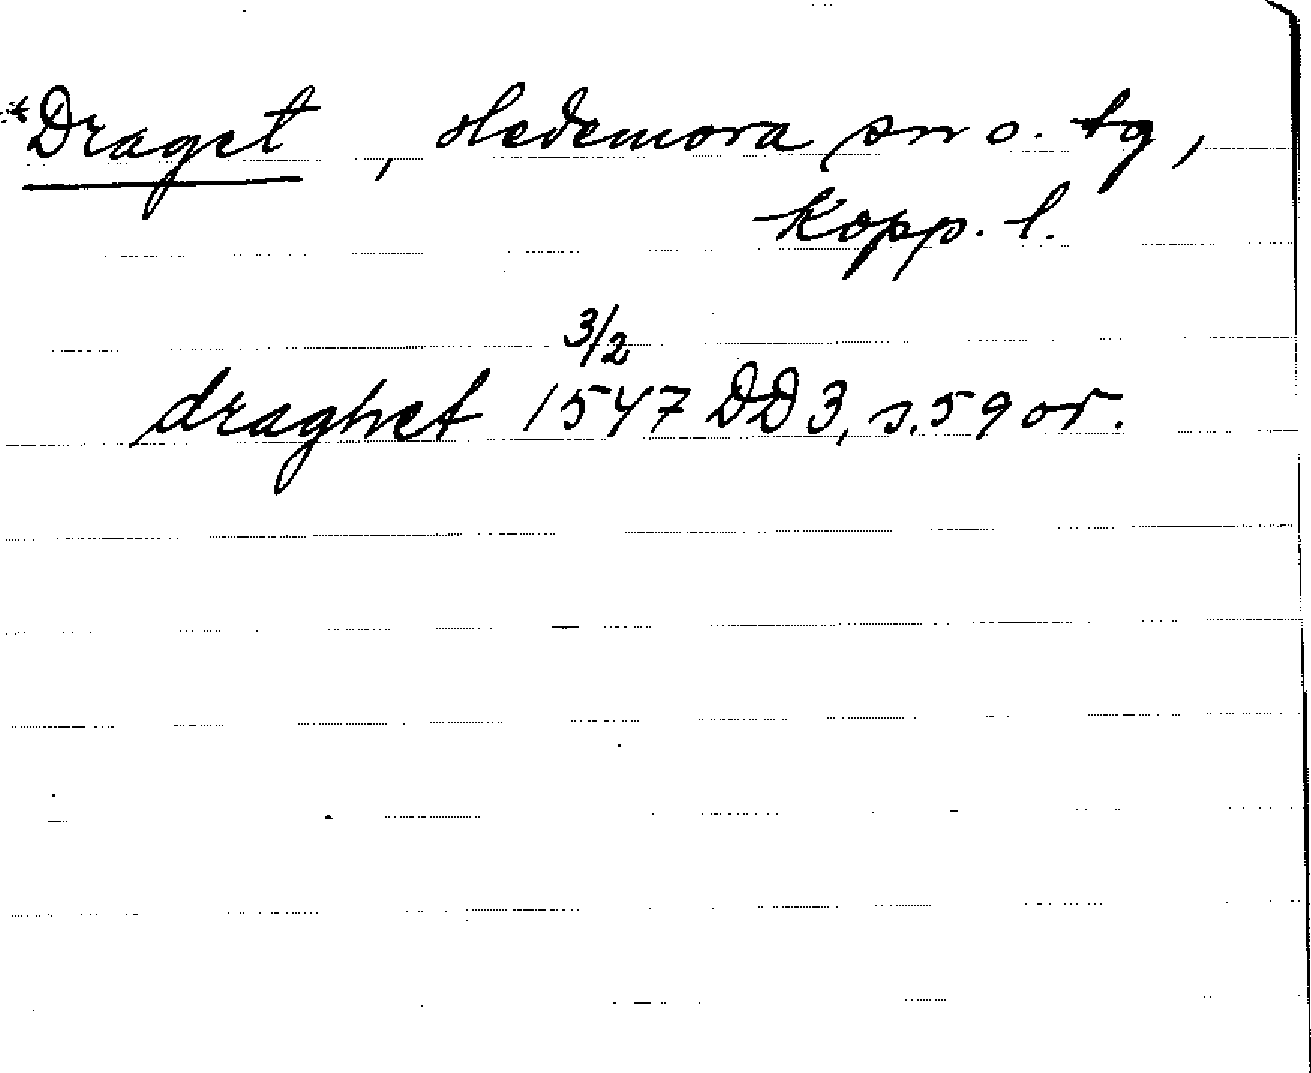 *Draget, Hedemora sn o. tg,
Kopp. l.
3/2
draghet 1547 DD 3, s. 59 or.